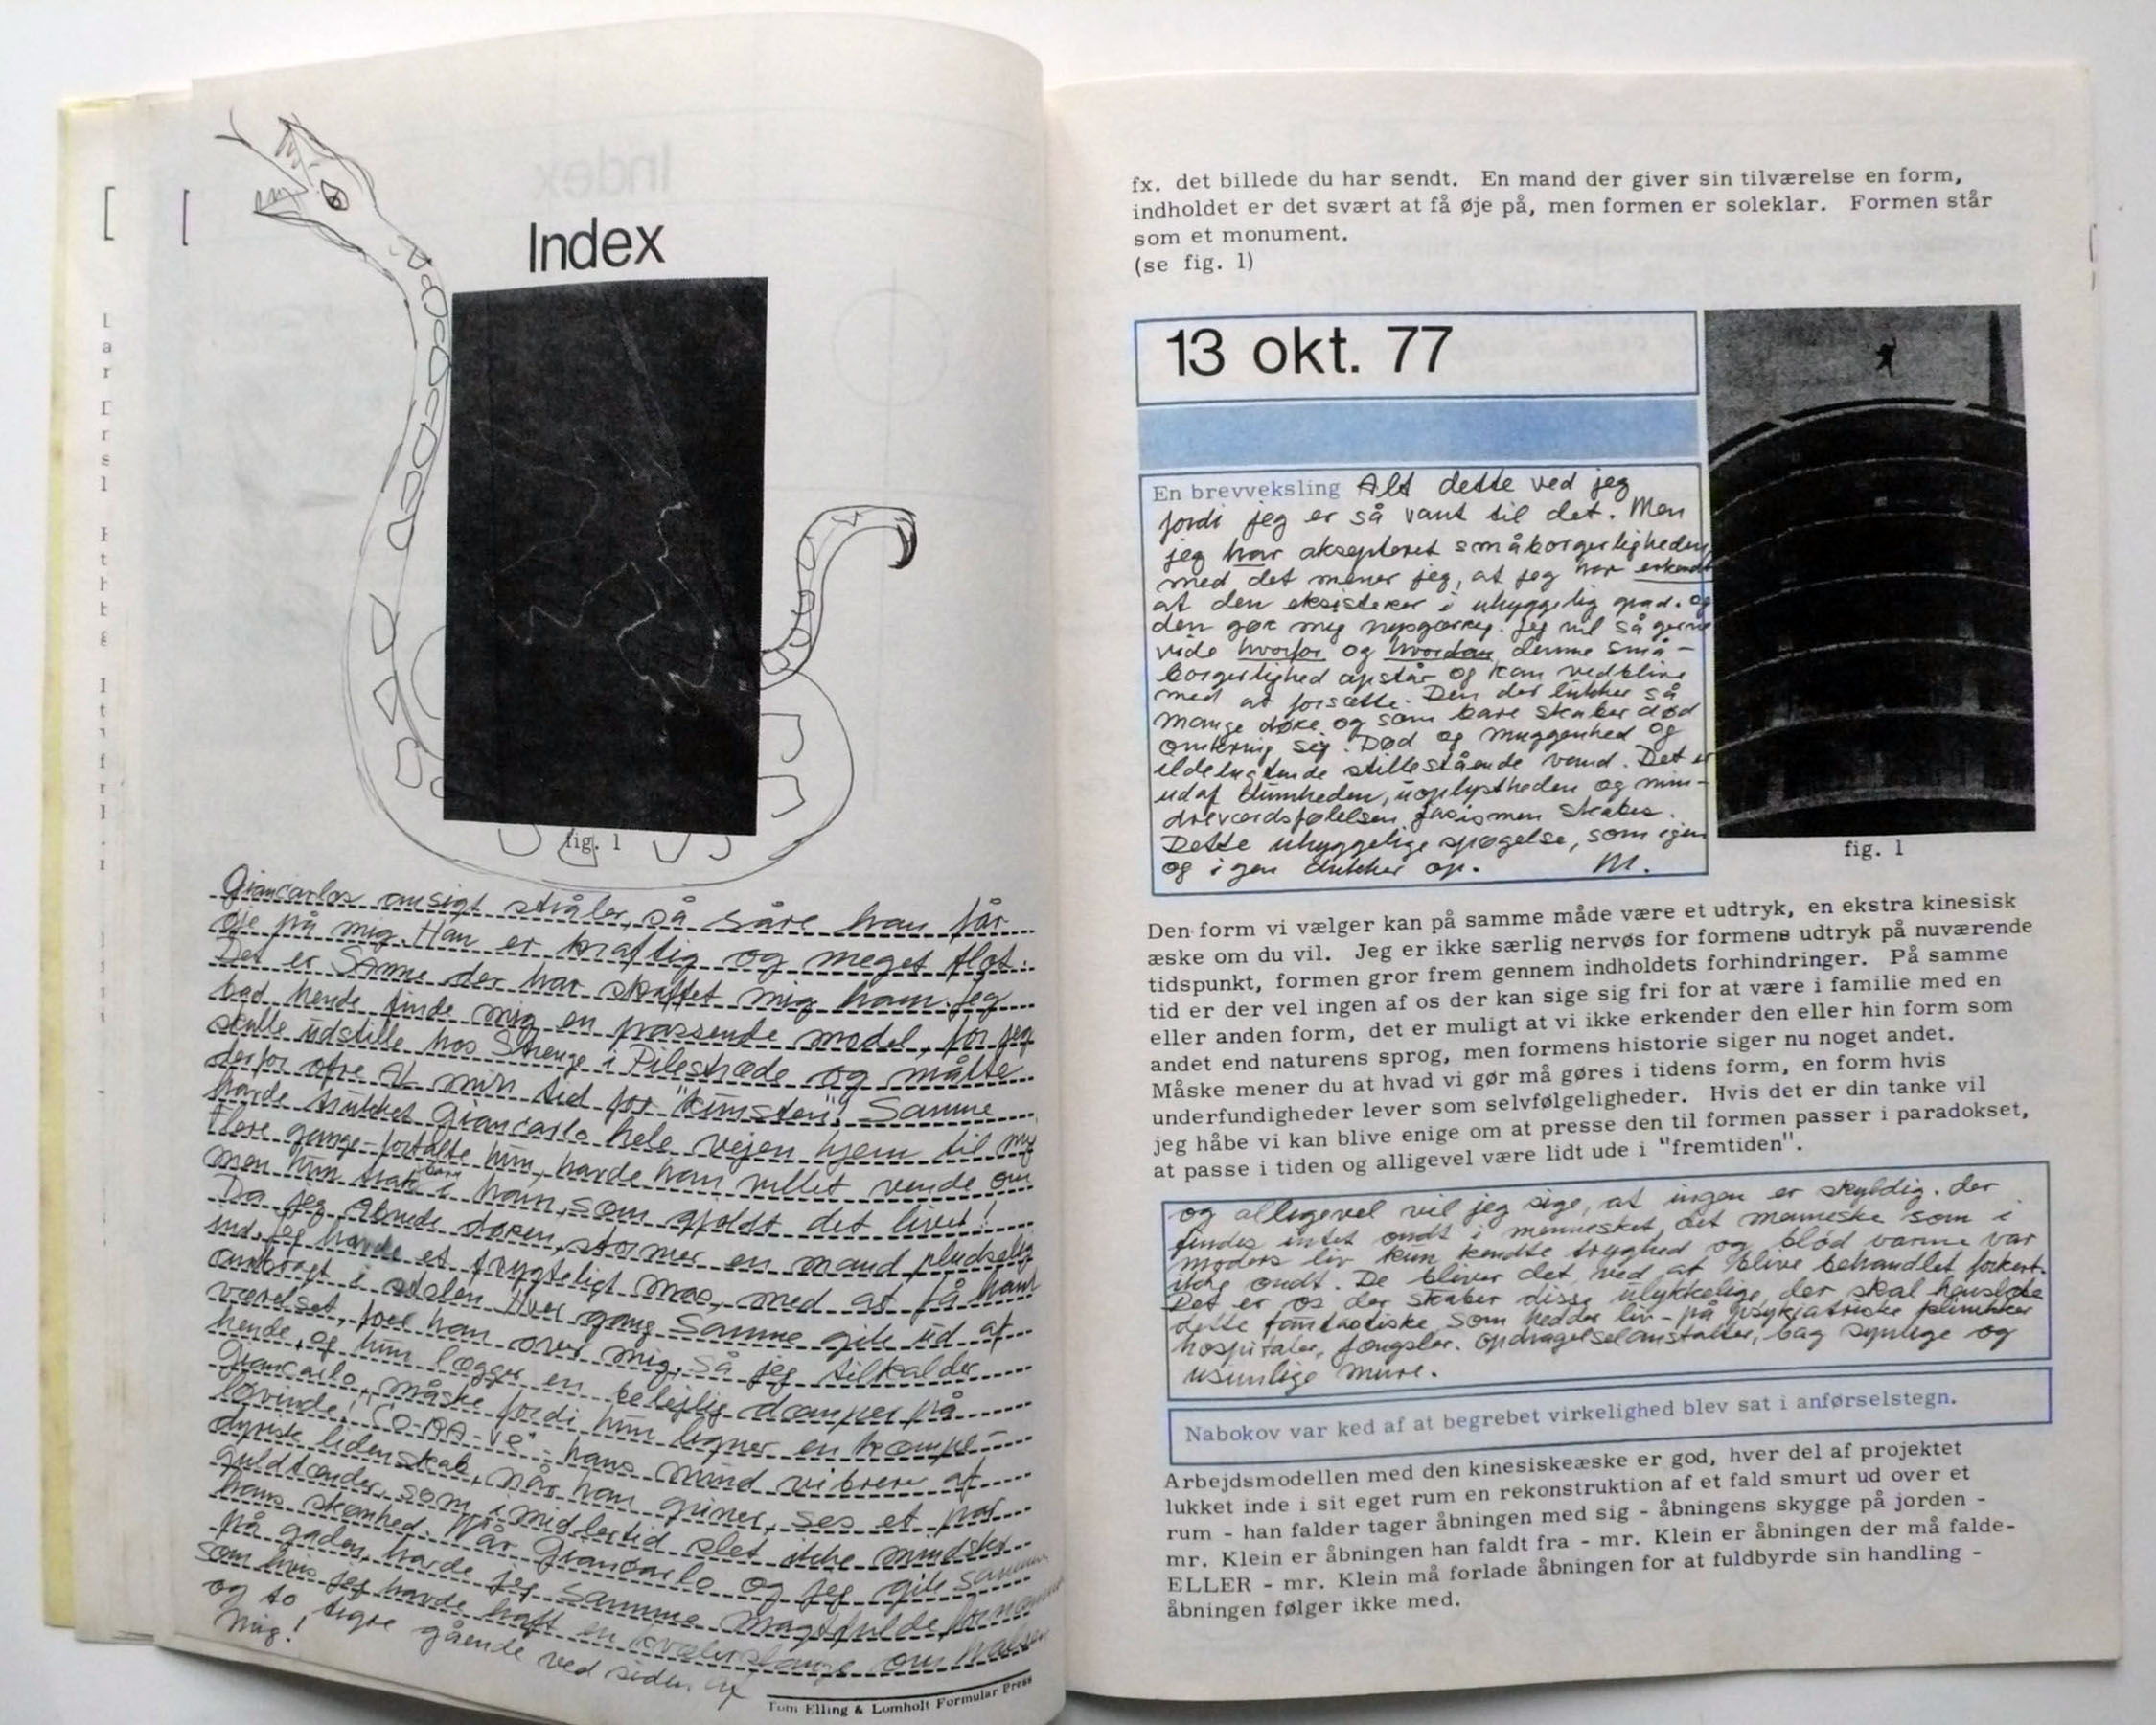 Index
fig. 1
Giancarlos ansigt stråler, så såre han får
øje på mig. Han er kraftig og meget flot.
Det er Sanne der har skaffet mig ham. Jeg
bad hende finde mig en passende model, for jeg
skulle udstille hos Strenge i Pilestræde og måtte
derfor ofre AL min tid for "kunsten". Sanne
havde trukket Giancarlo hele vejen hjem til mig
Flere gange - fortalte hun, havde han villet vende om
men hun trak bare i ham, som gjaldt det livet!
Da jeg åbnede døren, stormer en mand pludselig
ind. Jeg havde et frygteligt mas, med at få ham
anbragt i stolen. Hver gang Sanne gik ud af
værelset, foer han over mig, så jeg tilkalder
hende, og hun lægger en belejlig dæmper på
Giancarlo, måske fordi hun ligner en kæmpe-
løvinde!
dyrisk lidenskab, når han griner, ses et par
guldtænder, som imidlertid slet ikke mindsker
hans skønhed. Når Giancarlo og jeg gik sammen
på gaden, havde jeg samme magtfulde
som hvis jeg havde haft en kvælerslange om halsen
og to tigre gående ved siden af
mig!
Tom Elling & Lomholt Formular Press
fx. det billede du har sendt. En mand der giver sin tilværelse en form,
indholdet er det svært at få øje på, men formen er soleklar. Formen står
som et monument.
(se fig. 1)
13 okt. 77
En brevveksling Alt dette ved jeg
fordi jeg er så vant til det. Men
jeg har aksepteret småborgerligheden,
med det mener jeg, at jeg har erkendt
at den eksisterer i uhyggelig grad. og
den gør mig nysgerrig. Jeg vil så gerne
vide hvorfor og hvordan denne små-
borgerlighed opstår og kan vedblive
med at forsætte. Den der lukker så
mange døre og som bare skaber død
omkring sig. Død og muggenhed og
ildelugtende stillestående vand. Det er
udaf dumheden, uoplystheden og min-
dreværdsfølelsen fasismen skabes.
Dette uhyggelige spøgelse, som igen
og igen dukker op. M.
fig. 1
Den form vi vælger kan på samme måde være et udtryk, en ekstra kinesisk
æske om du vil. Jeg er ikke særlig nervøs for formens udtryk på nuværende
tidspunkt, formen gror frem gennem indholdets forhindringer. På samme
tid er der vel ingen af os der kan sige sig fri for at være i familie med en
eller anden form, det er muligt at vi ikke erkender den eller hin form som
andet end naturens sprog, men formens historie siger nu noget andet.
Måske mener du at hvad vi gør må gøres i tidens form, en form hvis
underfundigheder lever som selvfølgeligheder. Hvis det er din tanke vil
jeg håbe vi kan blive enige om at presse den til formen passer i paradokset,
at passe i tiden og alligevel være lidt ude i "fremtiden".
og alligevel vil jeg sige, at ingen er skyldig. der
findes intet ondt i mennesket, det menneske som i
moders liv kun kendte tryghed og blød varme var
ikke ondt. De bliver det, ved at blive behandlet forkert.
Det er os der skaber disse ulykkelige, der skal henslæbe
dette fantastiske som hedder liv - på psykiatriske klinikker
hospitaler, fængsler, opdragelselanstalter, bag synlige og
usynlige mure.
Nabokov var ked af at begrebet virkelighed blev sat i anførselstegn.
Arbejdsmodellen med den kinesiskeæske er god, hver del af projektet
lukket inde i sit eget rum en rekonstruktion af et fald smurt ud over et
rum - han falder tager åbningen med sig - åbningens skygge på jorden -
mr. Klein er åbningen han faldt fra - mr. Klein er åbningen der må falde-
ELLER - mr. Klein må forlade åbningen for at fuldbyrde sin handling -
åbningen følger ikke med.